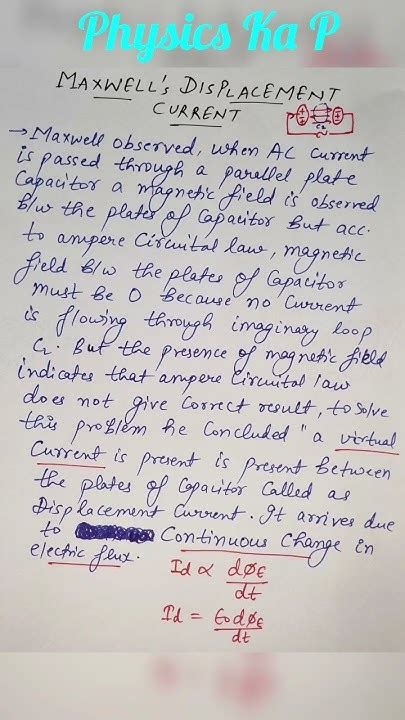 Physics Ka P
MAXWELL's DISPLACEMENT
CURRENT
→ Maxwell observed, when AC current
is passed through a parallel plate
Capacitor a magnetic field is observed
B/w the plates of Capacitor But acc.
to ampere Circuital law, magnetic
field B/w the plates of Capacitor
must be 0 Because no Current
is flowing through imaginary loop
C₂. But the presence of magnetic field
indicates that ampere Circuital law
does not give Correct result, to solve
this problem he Concluded "a virtual
Current is present is present between
the plates of Capacitor Called as
Displacement Current. It arrives due
to Continuous Change in
electric flux.
Id ∝ dφE/dt
Id = ε₀dφE/dt